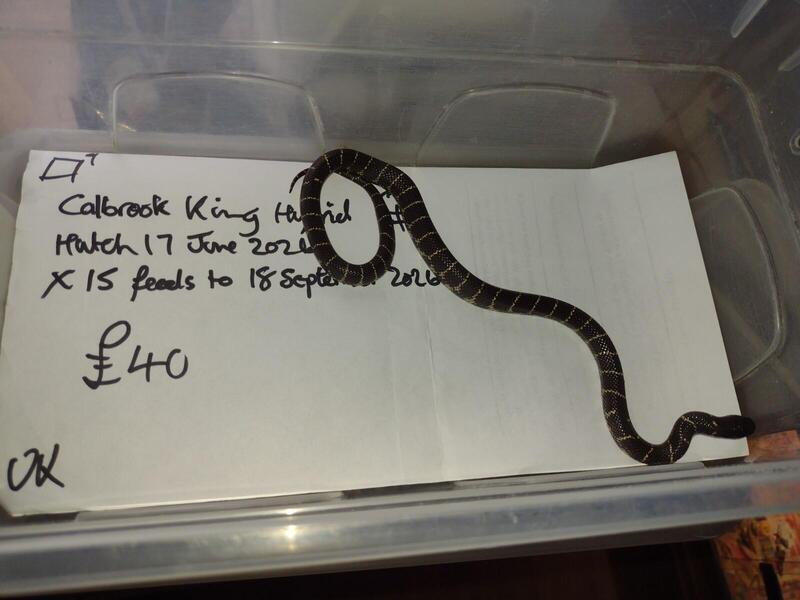 Calbrook King Hybrid #
Hatch 17 June 2026
X 15 feeds to 18 September 2026
£40
UK